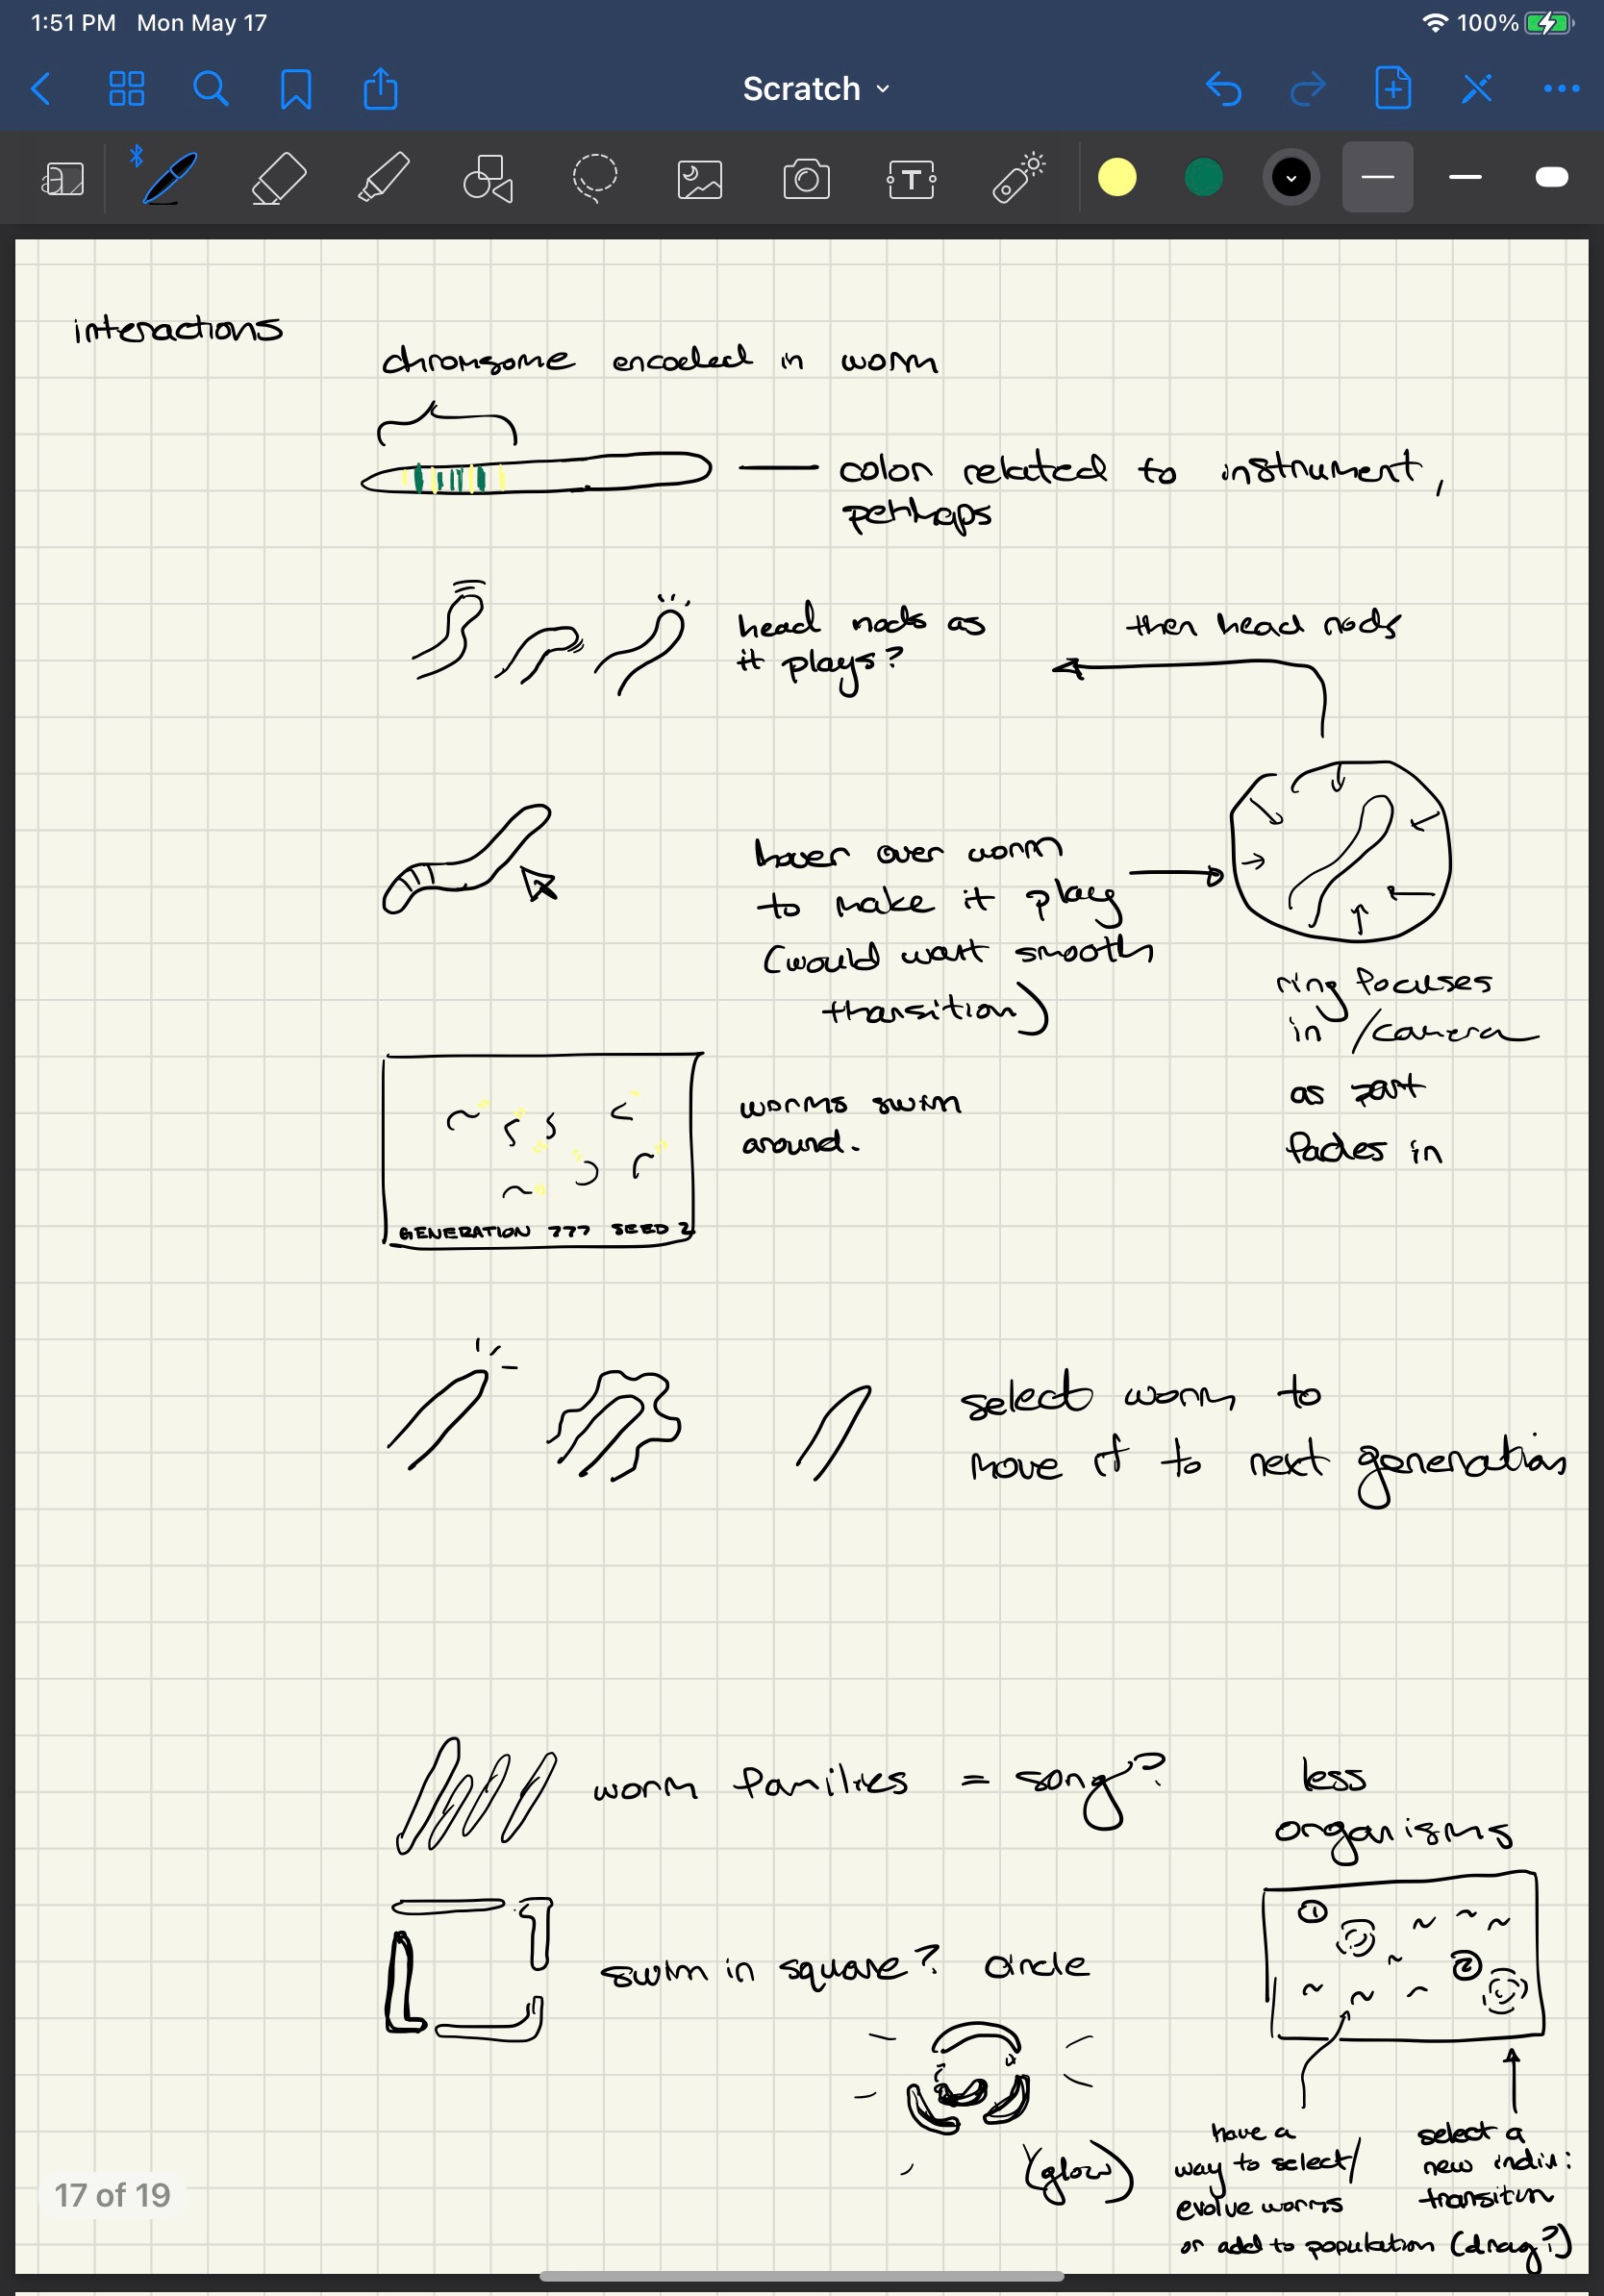 1:51 PM Mon May 17
100%
Scratch
T
interactions
chromsome encoded in worm
color related to instrument,
perhaps
head nods as
it plays?
then head nods
hover over worm
to make it play
(would want smooth
transition)
ring focuses
in /camera
as part
fades in
worms swim
around.
GENERATION 777 SEED 2
select worm to
move it to next generation
worm families = song?
less
organisms
swim in square? circle
1
2
(glow)
have a
way to select/
evolve worms
or add to population (drag?)
select a
new indiv:
transition
17 of 19